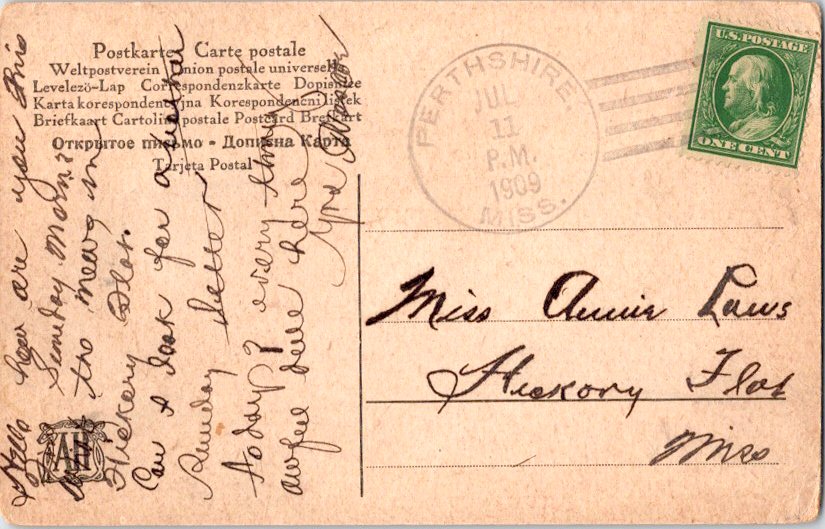 Postkarte Carte postale
Weltpostverein Union postale universelle
Levelező-Lap Correspondenzkarte Dopisnice
Karta korespondencyjna Korespondenční lístek
Briefkaart Cartolina postale Postcard Brefkort
Открытое письмо - Дописна Карта
Tarjeta Postal
PERTHSHIRE,
JUL
11
P.M.
1909
MISS.
U.S. POSTAGE
ONE CENT
Miss Annie Laws
Hickory Flat
Miss
Hello how are you this
Sunday Morn?
the meang in
Hickory Flat.
Can I look for a
Sunday letter
today? every thing
awful dull here
AH